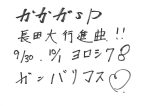 ガガガSP
長田大行進曲!!
9/30. 10/1 ヨロシク8
ガンバリコス♡